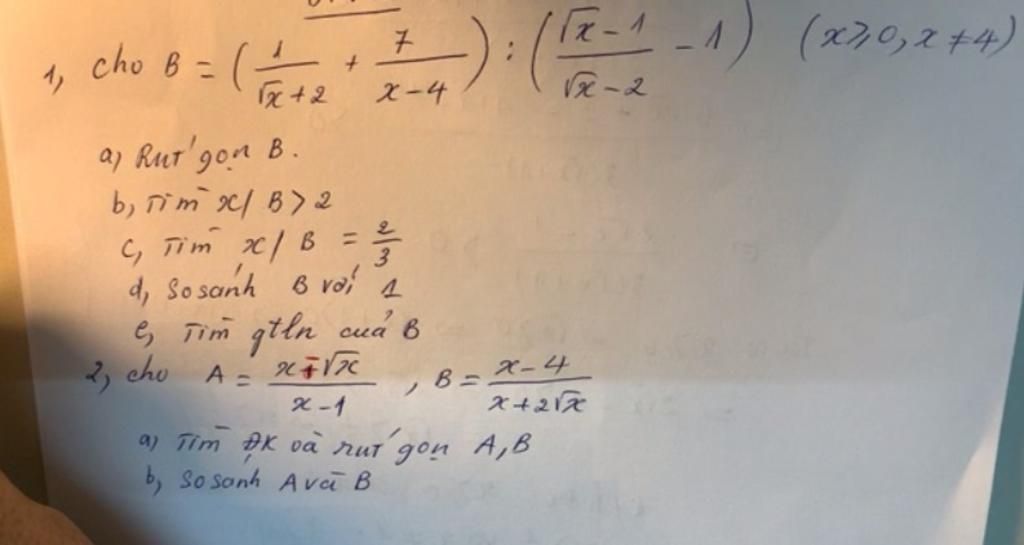 1, cho B = (1/(√x+2) + 7/(x-4)) : ((√x-1)/(√x-2) - 1) (x≥0, x≠4)
a) Rút gọn B.
b, Tìm x/ B > 2
c, Tìm x/ B = 2/3
d, So sánh B với 1
e, Tìm gtln của B
2, cho A = (x+√x)/(x-1) , B = (x-4)/(x+2√x)
a) Tìm ĐK và rút gọn A, B
b, So sánh A và B